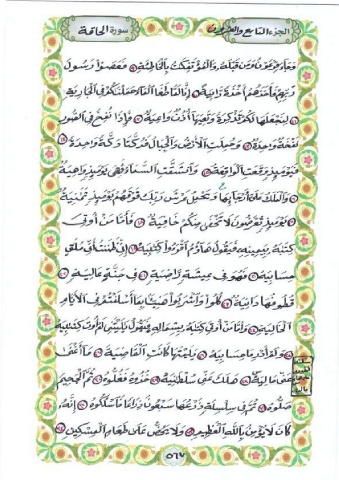 الجزء التاسع والعشرون
سورة الحاقة
وجاء فرعون ومن قبله والمؤتفكت بالخاطئة فعصوا رسول
ربهم فأخذهم أخذة رابية إنا لما طغا الماء حملنكم في الجارية
لنجعلها لكم تذكرة وتعيها أذن واعية فإذا نفخ في الصور
نفخة واحدة وحملت الأرض والجبال فدكتا دكة واحدة
فيومئذ وقعت الواقعة وانشقت السماء فهي يومئذ واهية
والملك على أرجائها ويحمل عرش ربك فوقهم يومئذ ثمنية
يومئذ تعرضون لا تخفى منكم خافية فأما من أوتي
كتبه بيمينه فيقول هاؤم اقرءوا كتبيه إني ظننت أني ملق
حسابيه فهو في عيشة راضية في جنة عالية
قطوفها دانية كلوا واشربوا هنيئا بما أسلفتم في الأيام
الخالية وأما من أوتي كتبه بشماله فيقول يليتني لم أوت كتبيه
ولم أدر ما حسابيه يليتها كانت القاضية ما أغنى
عني ماليه هلك عني سلطنيه خذوه فغلوه ثم الجحيم
صلوه ثم في سلسلة ذرعها سبعون ذراعا فاسلكوه إنه
كان لا يؤمن بالله العظيم ولا يحض على طعام المسكين
٥٦٧